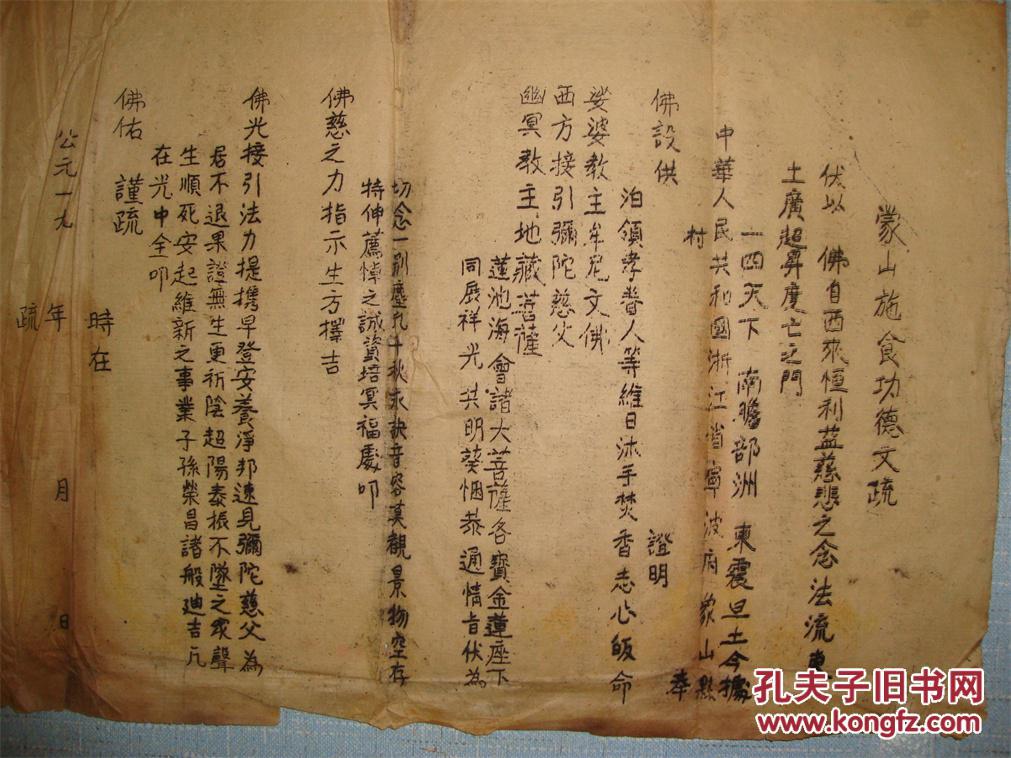 蒙山施食功德文疏
伏以　佛自西來恆利益慈悲之念法流東
土廣超昇度亡之門
一四天下　南瞻部洲　東震旦土今據
中華人民共和國浙江省寧波府象山縣
村　奉
佛設供　證明
洎領孝眷人等維日沐手焚香志心皈命
娑婆教主牟尼文佛
西方接引彌陀慈父
幽冥教主地藏菩薩
蓮池海會諸大菩薩各寶金蓮座下
同展祥光共明葵悃恭通情旨伏為
切念一別塵凡千秋永訣音容莫覩景物空存
特伸薦悼之誠資培冥福處叩
佛慈之力指示生方擇吉
佛光接引法力提携早登安養淨邦速見彌陀慈父為
居不退果證無生更祈陰超陽泰振不墜之家聲
生順死安起維新之事業子孫榮昌諸般迪吉凡
在光中全叩
佛佑　謹疏
時在
公元一九　年　月　日
疏
孔夫子旧书网
www.kongfz.com